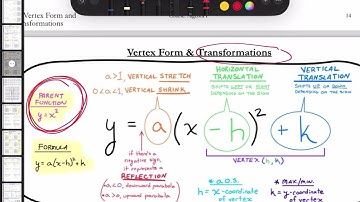 Vertex Form and
nsformations
14
Vertex Form & Transformations
PARENT
FUNCTION
y = x²
FORMULA
y = a(x-h)² + k
a>1, VERTICAL STRETCH
0<a<1, VERTICAL SHRINK
HORIZONTAL
TRANSLATION
SHIFTS LEFT OR RIGHT
DEPENDING ON THE SIGN
VERTICAL
TRANSLATION
SHIFTS UP OR DOWN
DEPENDING ON THE SIGN
y = a(x - h)² + k
VERTEX (h, k)
if there's a
negative sign,
it represents a
REFLECTION
a<0, downward parabola
a>0, upward parabola
* a.o.s.
h = x-coordinate
of vertex
* max/min.
k = y-coordinate
of vertex